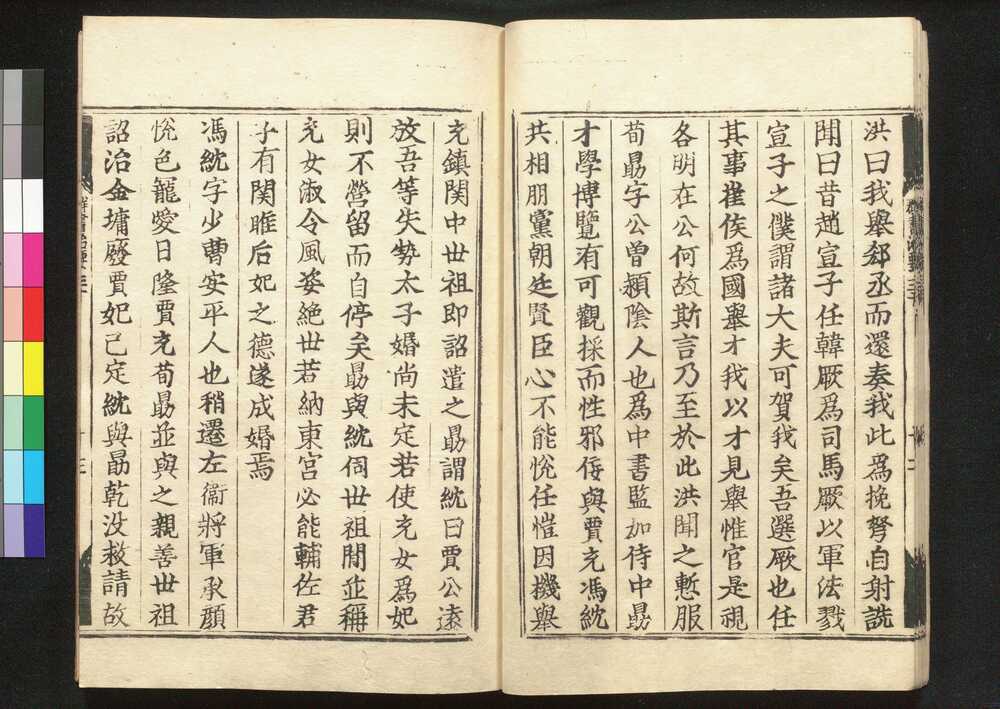 洪曰我舉郄丞而還奏我此爲挽弩自射詵
聞曰昔趙宣子任韓厥爲司馬厥以軍法戮
宣子之僕謂諸大夫可賀我矣吾選厥也任
其事崔侯爲國舉才我以才見舉惟官是視
各明在公何故斯言乃至於此洪聞之慙服
荀勗字公曾潁陰人也爲中書監加侍中勗
才學博覽有可觀採而性邪佞與賈充馮紞
共相朋黨朝廷賢臣心不能悅任愷因機舉
充鎮関中世祖即詔遣之勗謂紞曰賈公遠
放吾等失勢太子婚尚未定若使充女爲妃
則不營留而自停矣勗與紞伺世祖間並稱
充女淑令風姿絶世若納東宮必能輔佐君
子有関雎后妃之德遂成婚焉
馮紞字少曹安平人也稍遷左衞將軍承顔
悅色寵愛日隆賈充荀勗並與之親善世祖
詔治金墉廢賈妃已定紞與勗乾没救請故